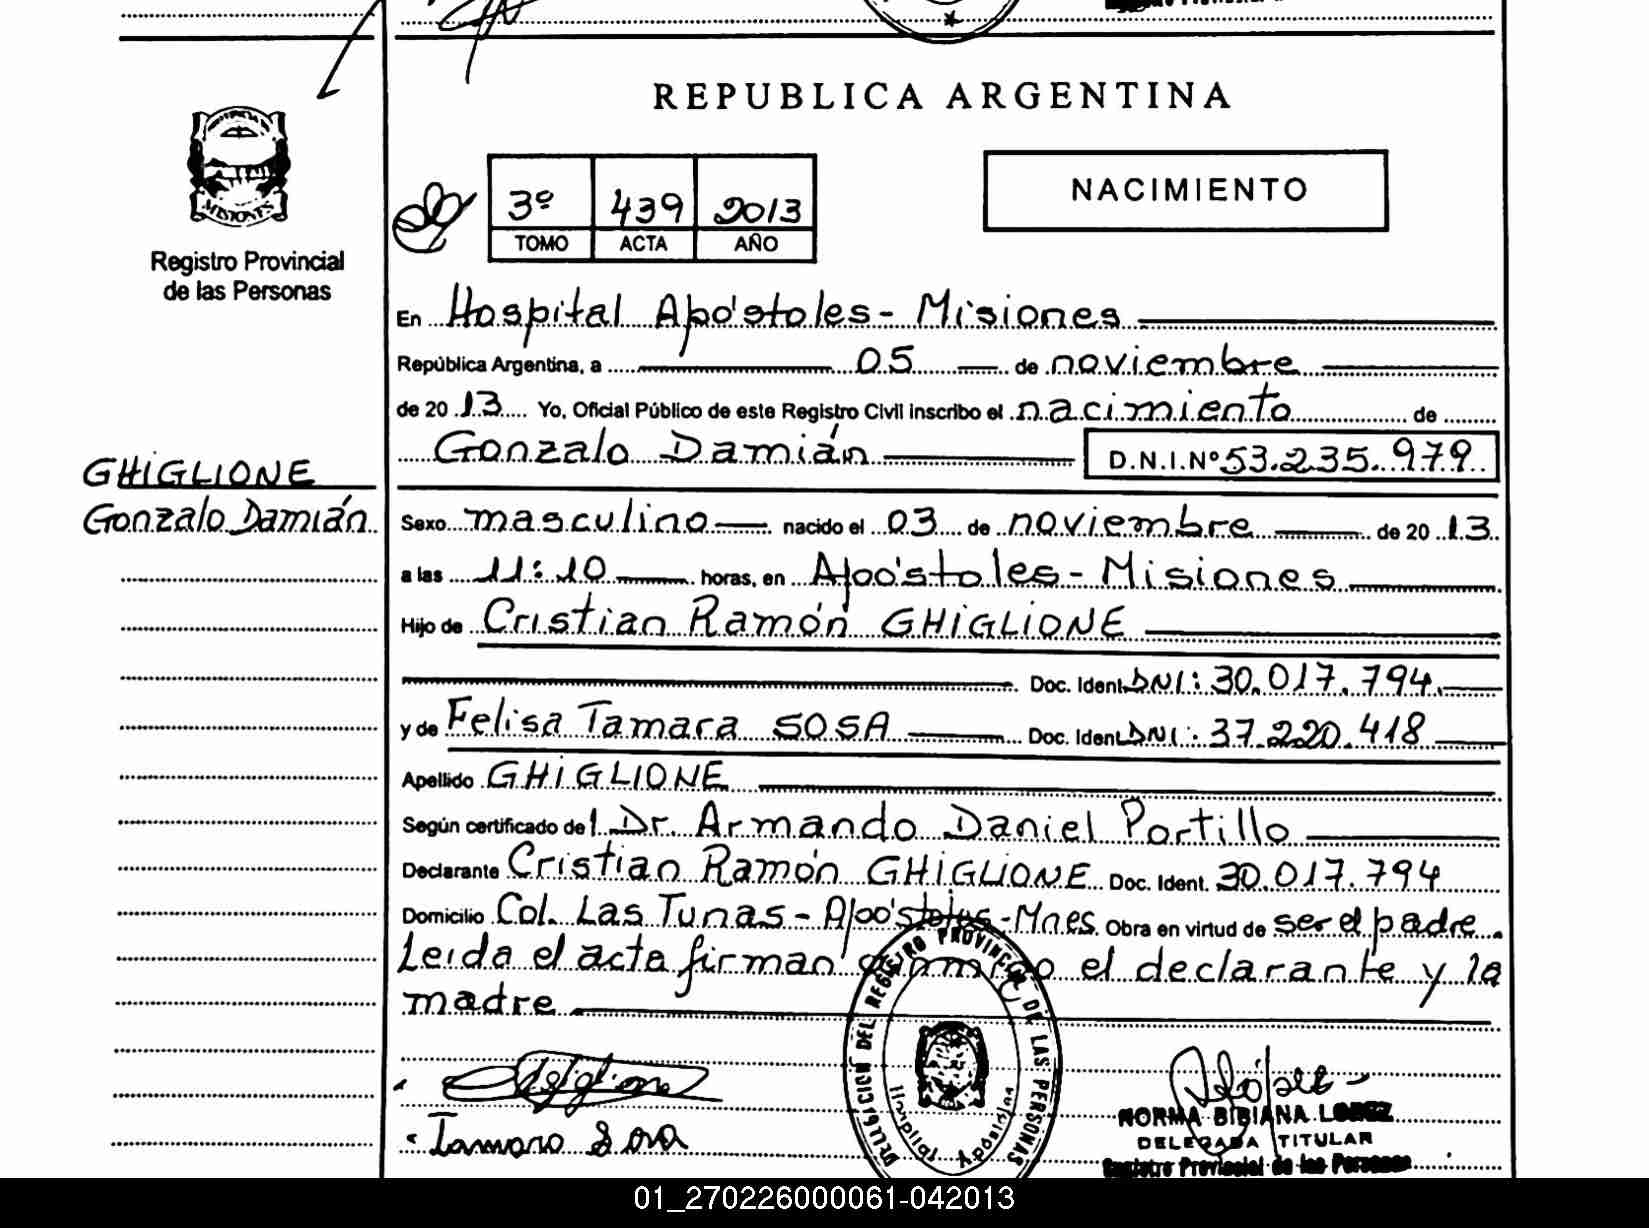 REPUBLICA ARGENTINA
MISIONES
Registro Provincial
de las Personas
3º 439 2013
TOMO ACTA AÑO
NACIMIENTO
En Hospital Apóstoles - Misiones
República Argentina, a 05 de noviembre
de 2013 Yo, Oficial Público de este Registro Civil inscribo el nacimiento de
Gonzalo Damián D.N.I.Nº 53.235.979
GHIGLIONE
Gonzalo Damián
Sexo masculino nacido el 03 de noviembre de 2013
a las 11:10 horas, en Apóstoles - Misiones
Hijo de Cristian Ramón GHIGLIONE
Doc. Ident. DNI: 30.017.794
y de Felisa Tamara SOSA Doc. Ident. DNI: 37.220.418
Apellido GHIGLIONE
Según certificado del Dr. Armando Daniel Portillo
Declarante Cristian Ramón GHIGLIONE Doc. Ident. 30.017.794
Domicilio Col. Las Tunas - Apóstoles - Mnes. Obra en virtud de ser el padre.
Leída el acta firman conmigo el declarante y la
madre
DELEGACION DEL REGISTRO PROVINCIAL DE LAS PERSONAS
Hospital Apóstoles
Tamara Sosa
NORMA BIBIANA LOPEZ
DELEGADA TITULAR
Registro Provincial de las Personas
01_270226000061-042013